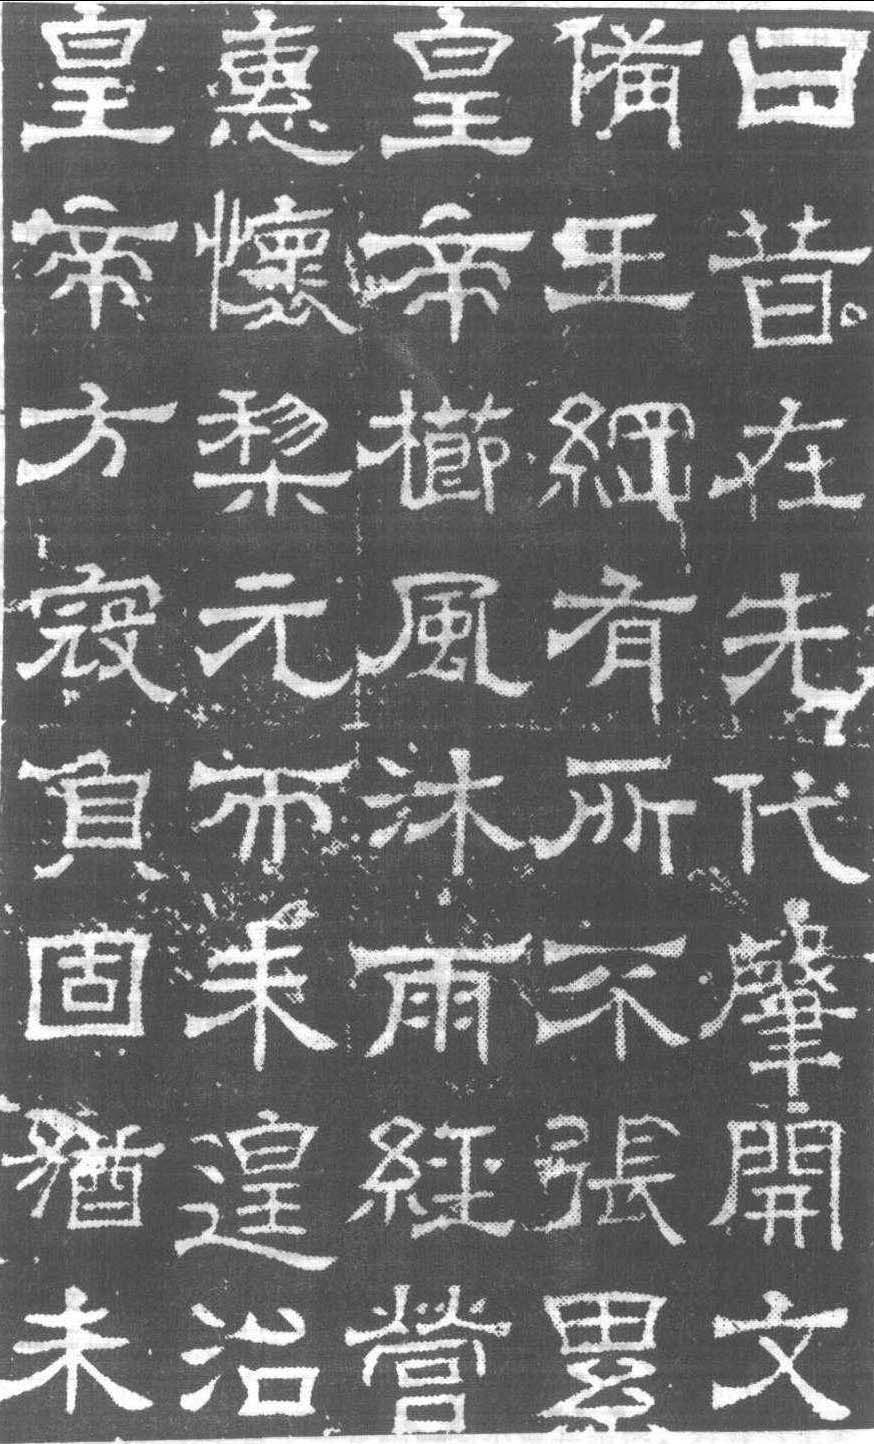 曰昔在先代肇開文
備王綱有所不張累
皇帝櫛風沐雨經營
惠懷黎元而未遑治
皇帝方寇負固猶未